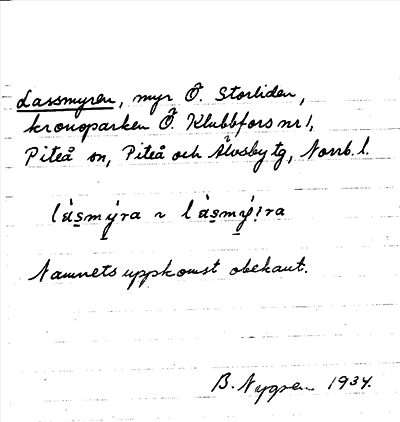 Lassmyren, myr Ö. Storliden,
kronoparken Ö. Klubbfors nr 1,
Piteå sn, Piteå och Älvsby tg, Norrb. l.
Namnets uppkomst obekant.
B. Nygren 1934.